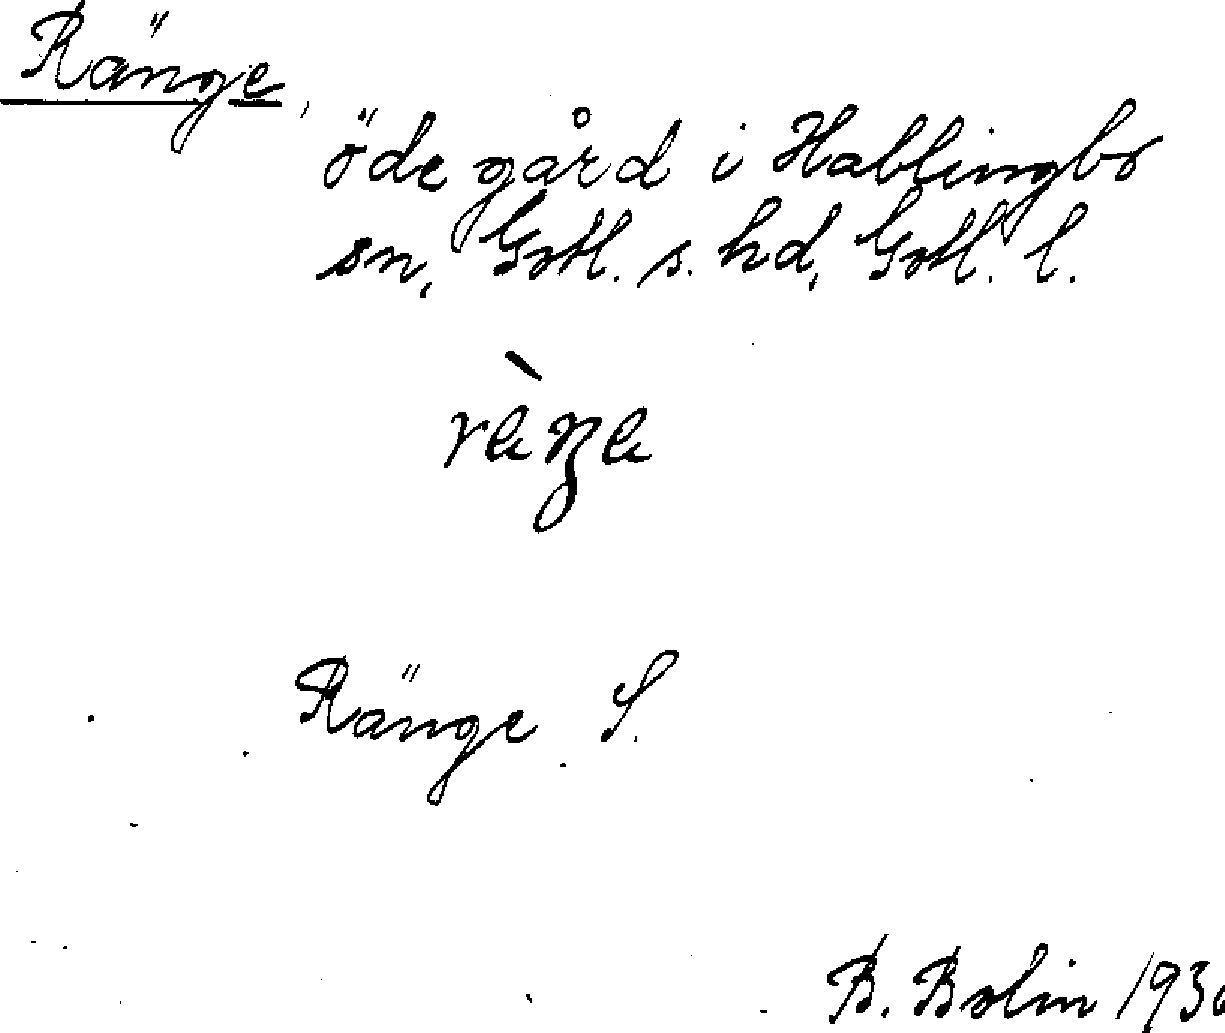 Ränge,
öde gård i Hablingbo
sn, Gotl. s. hd, Gotl. l.
Ränge S.
B. Bolin